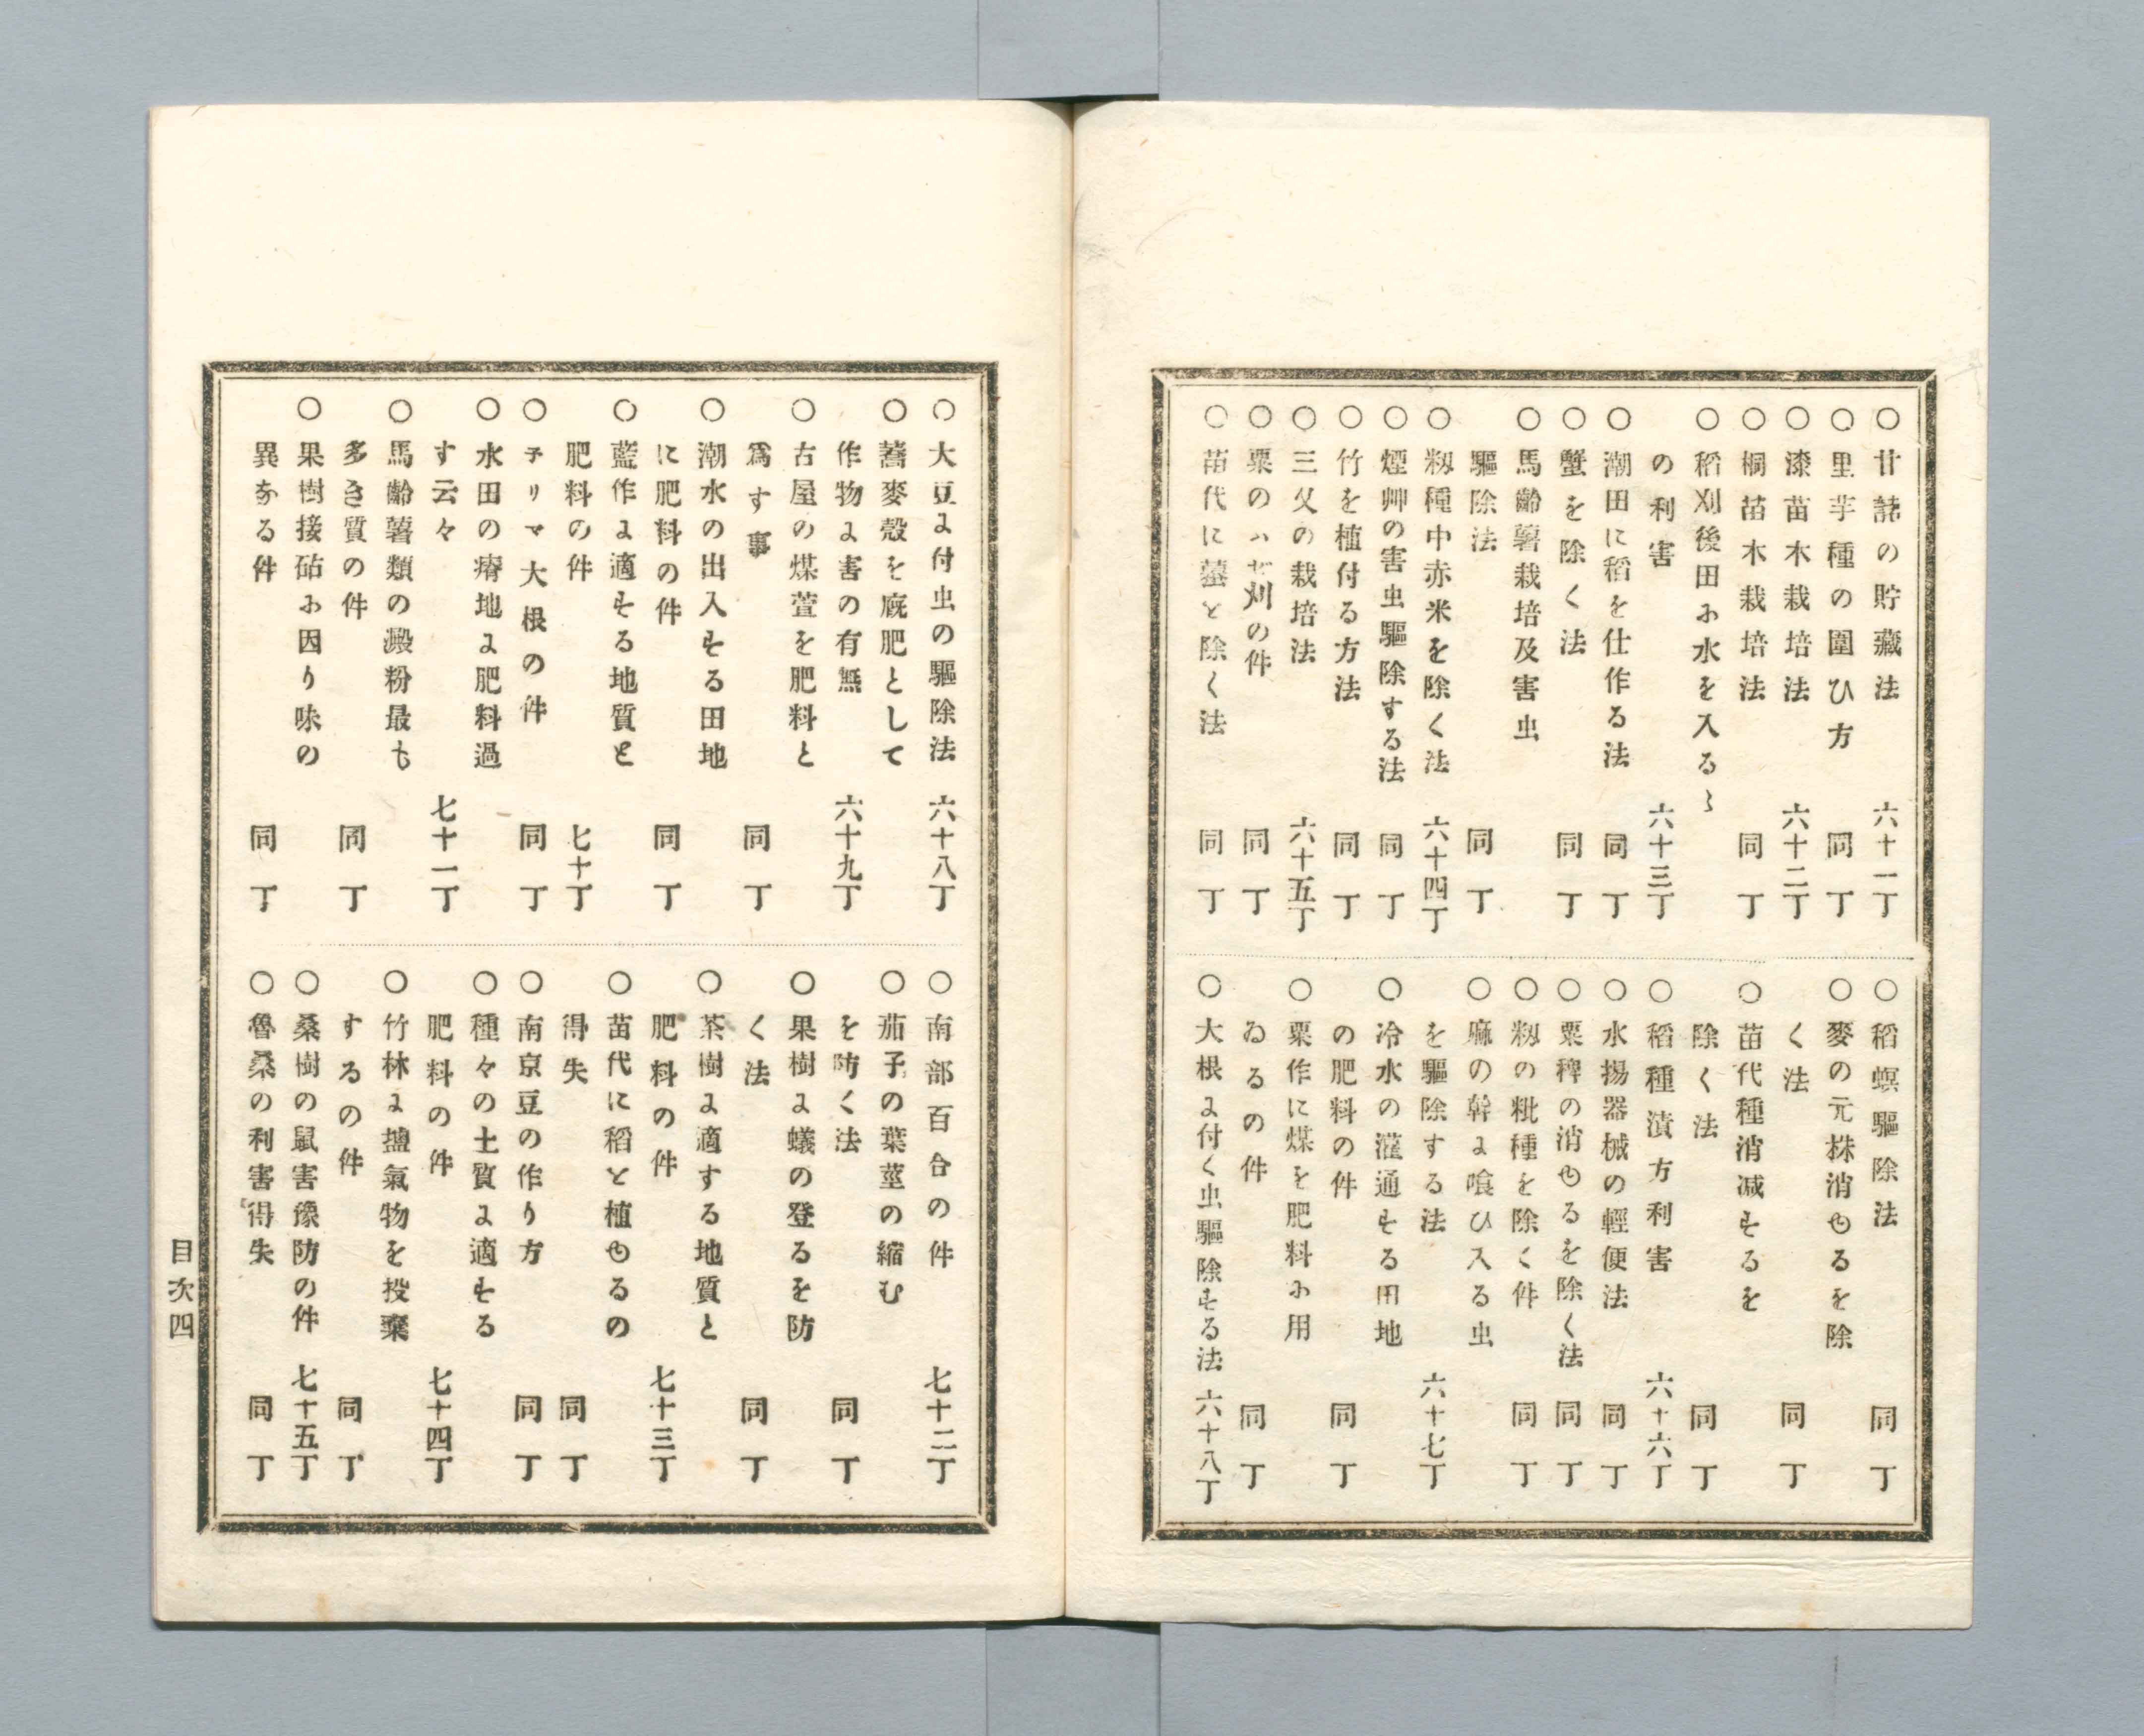 ○甘藷の貯藏法 六十一丁
○里芋種の圍ひ方 同丁
○漆苗木栽培法 六十二丁
○桐苗木栽培法 同丁
○稻刈後田に水を入るゝ
の利害 六十三丁
○潮田に稻を仕作る法 同丁
○蟹を除く法 同丁
○馬齡薯栽培及害虫
驅除法 同丁
○籾種中赤米を除く法 六十四丁
○煙艸の害虫驅除する法 同丁
○竹を植付る方法 同丁
○三叉の栽培法 六十五丁
○粟のハゼ刈の件 同丁
○苗代に蟇を除く法 同丁
○稻螟驅除法 同丁
○麥の元株消ゆるを除
く法 同丁
○苗代種消滅するを
除く法 同丁
○稻種漬方利害 六十六丁
○水揚器械の輕便法 同丁
○粟稗の消ゆるを除く法 同丁
○籾の粃種を除く件 同丁
○麻の幹に喰ひ入る虫
を驅除する法 六十七丁
○冷水の灌通する田地
の肥料の件 同丁
○粟作に煤を肥料に用
ゐるの件 同丁
○大根に付く虫驅除する法 六十八丁
○大豆に付虫の驅除法 六十八丁
○蕎麥殼を廐肥として
作物に害の有無 六十九丁
○古屋の煤萱を肥料と
爲す事 同丁
○潮水の出入する田地
に肥料の件 同丁
○藍作に適する地質と
肥料の件 七十丁
○子リマ大根の件 同丁
○水田の瘠地に肥料過
す云々 七十一丁
○馬齡薯類の澱粉最も
多き質の件 同丁
○果樹接砧に因り味の
異なる件 同丁
○南部百合の件 七十二丁
○茄子の葉莖の縮む
を防く法 同丁
○果樹に蟻の登るを防
く法 同丁
○茶樹に適する地質と
肥料の件 七十三丁
○苗代に稻を植ゆるの
得失 同丁
○南京豆の作り方 同丁
○種々の土質に適する
肥料の件 七十四丁
○竹林に鹽氣物を投棄
するの件 同丁
○桑樹の鼠害豫防の件 七十五丁
○魯桑の利害得失 同丁
目次四